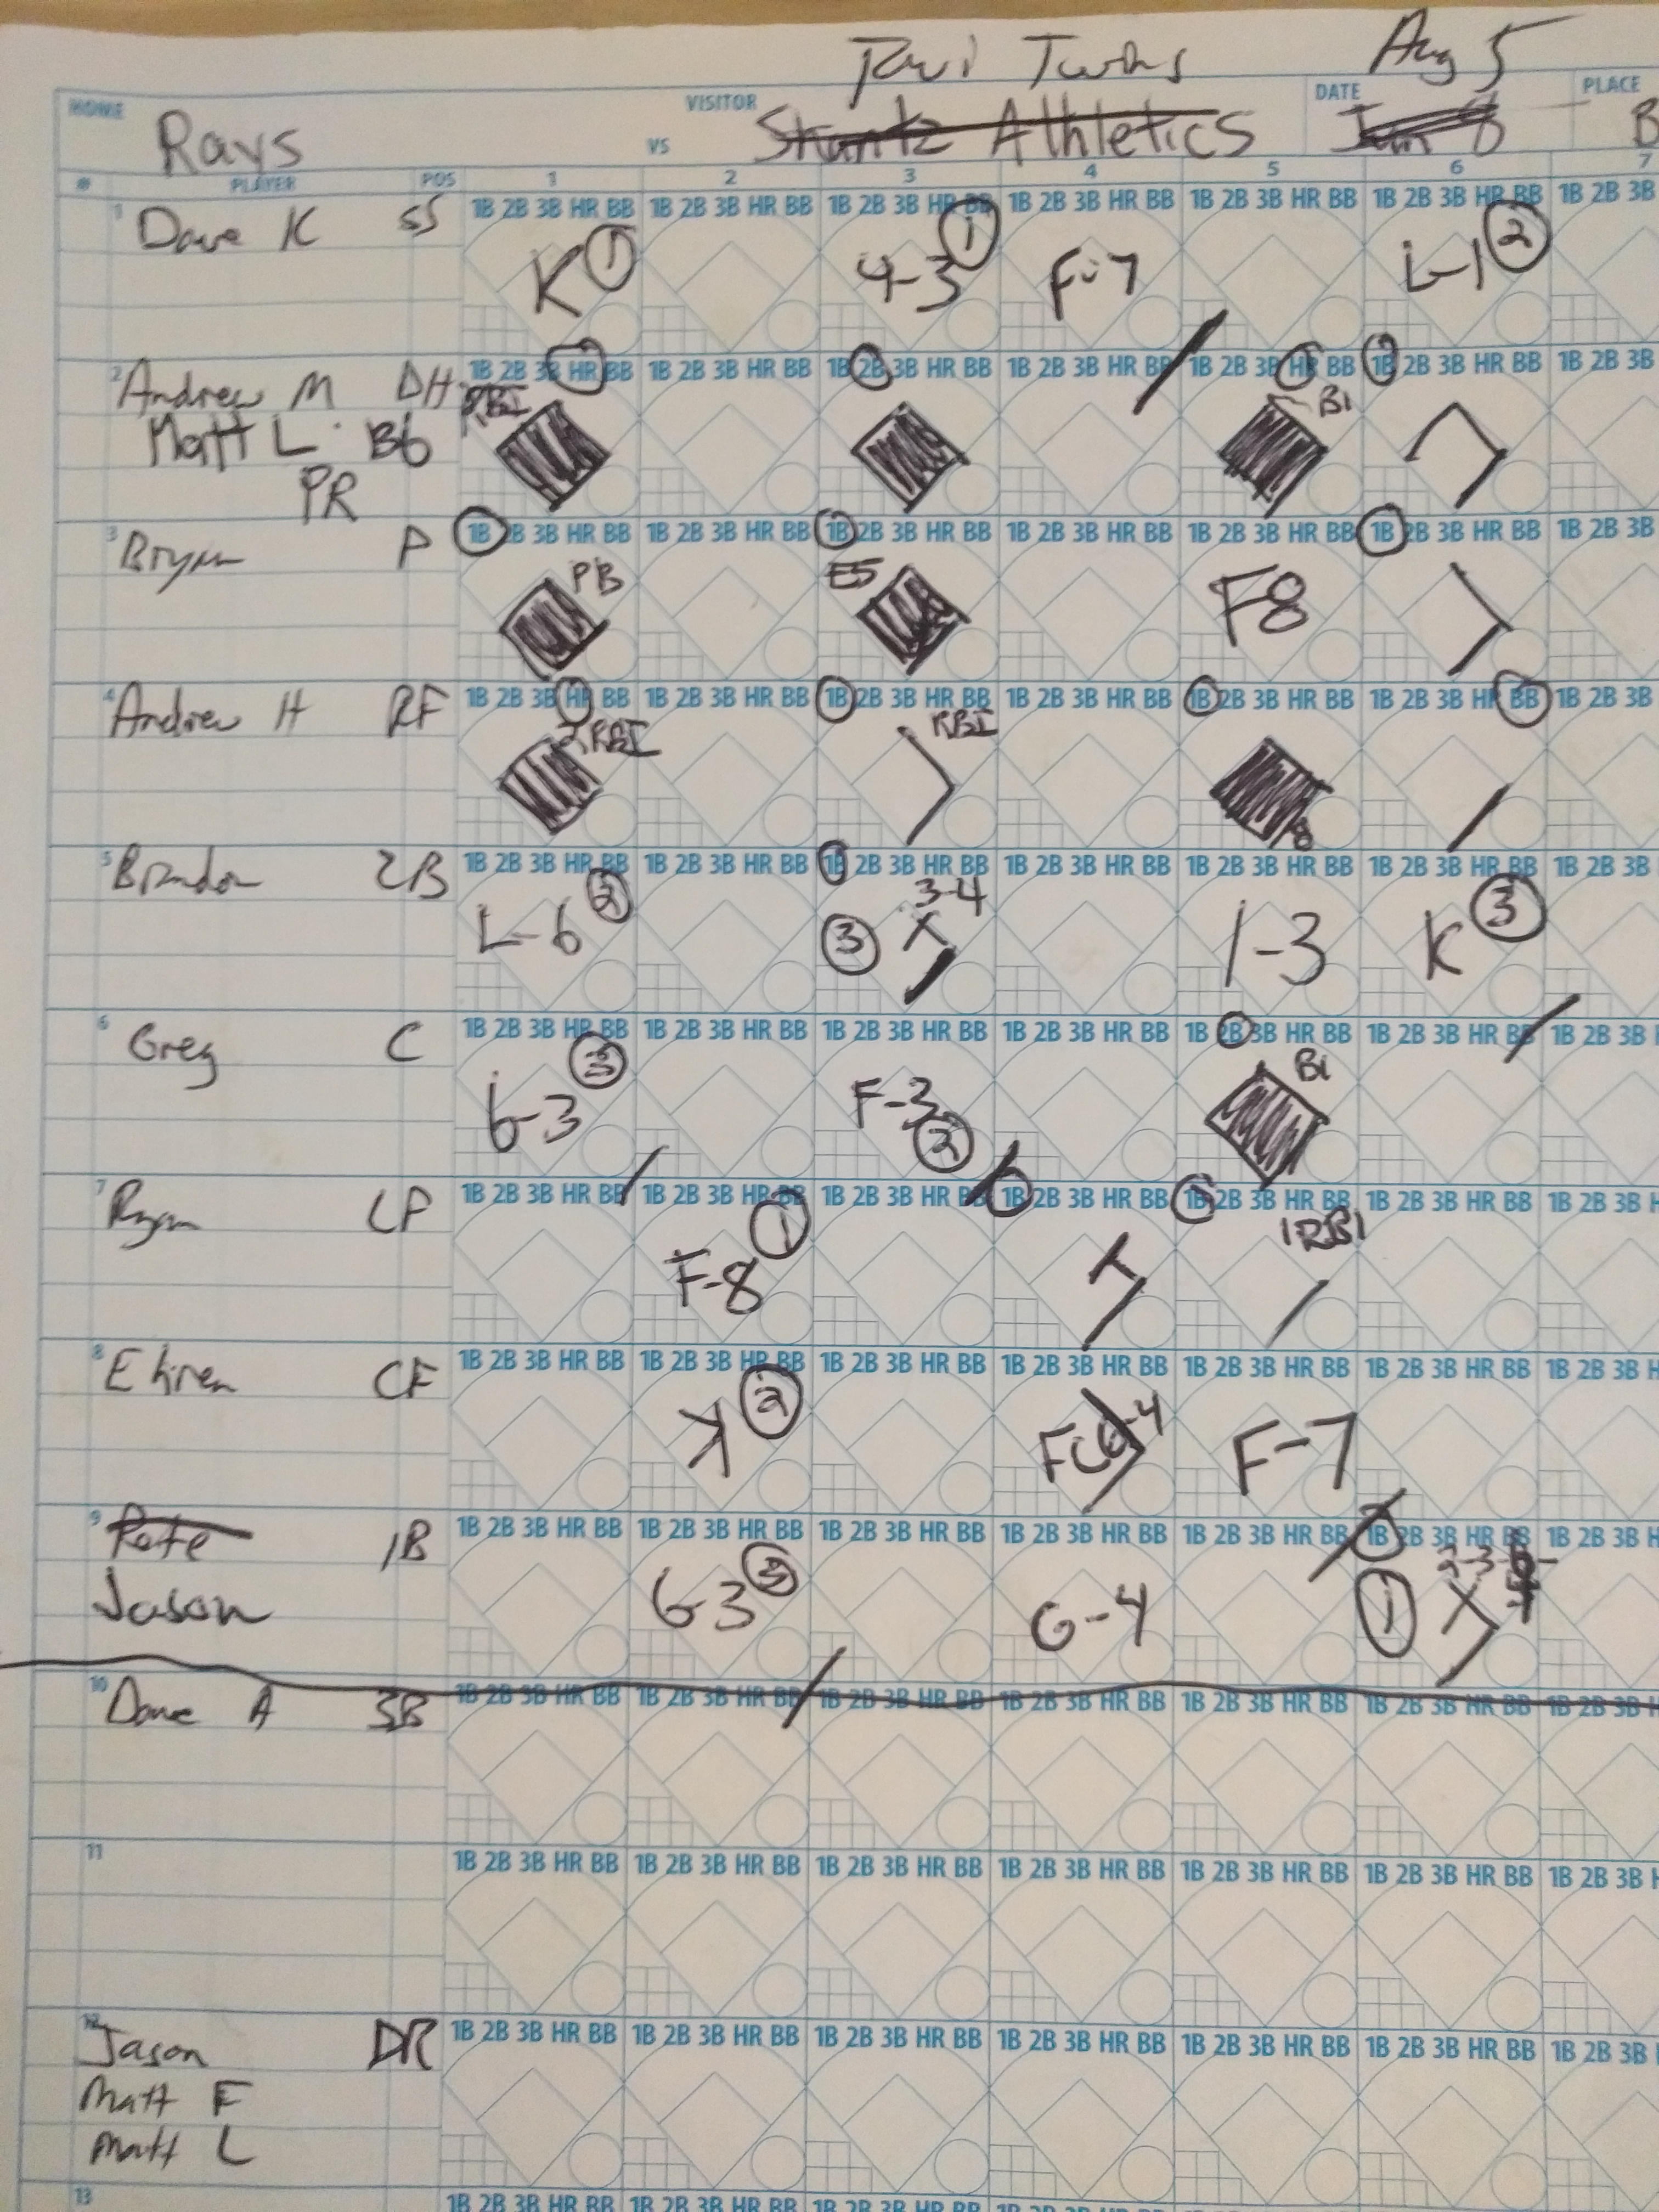 Twins Aug 5
HOME VISITOR DATE PLACE
Rays VS Shantz Athletics Jun 8 B
# PLAYER POS 1 2 3 4 5 6 7
1 1B 2B 3B HR BB 1B 2B 3B HR BB 1B 2B 3B HR BB 1B 2B 3B HR BB 1B 2B 3B HR BB 1B 2B 3B HR BB 1B 2B 3B
Dave K SS K 1 4-3 1 F-7 L-1 2
2 1B 2B 3B HR BB 1B 2B 3B HR BB 1B 2B 3B HR BB 1B 2B 3B HR BB 1B 2B 3B HR BB 1B 2B 3B HR BB 1B 2B 3B
Andrew M DH RBI BI
Matt L B6
PR
3 1B 2B 3B HR BB 1B 2B 3B HR BB 1B 2B 3B HR BB 1B 2B 3B HR BB 1B 2B 3B HR BB 1B 2B 3B HR BB 1B 2B 3B
Bryan P PB E5 F8
4 1B 2B 3B HR BB 1B 2B 3B HR BB 1B 2B 3B HR BB 1B 2B 3B HR BB 1B 2B 3B HR BB 1B 2B 3B HR BB 1B 2B 3B
Andrew H RF 2RBI RBI
5 1B 2B 3B HR BB 1B 2B 3B HR BB 1B 2B 3B HR BB 1B 2B 3B HR BB 1B 2B 3B HR BB 1B 2B 3B HR BB 1B 2B 3B
Brandon 2B L-6 2 3-4 3 1-3 K 3
6 1B 2B 3B HR BB 1B 2B 3B HR BB 1B 2B 3B HR BB 1B 2B 3B HR BB 1B 2B 3B HR BB 1B 2B 3B HR BB 1B 2B 3B
Greg C 6-3 3 F-3 2 BI
7 1B 2B 3B HR BB 1B 2B 3B HR BB 1B 2B 3B HR BB 1B 2B 3B HR BB 1B 2B 3B HR BB 1B 2B 3B HR BB 1B 2B 3B
Ryan LF F-8 1 1RBI
8 1B 2B 3B HR BB 1B 2B 3B HR BB 1B 2B 3B HR BB 1B 2B 3B HR BB 1B 2B 3B HR BB 1B 2B 3B HR BB 1B 2B 3B
CF K 2 FC6-4 F-7
9 1B 2B 3B HR BB 1B 2B 3B HR BB 1B 2B 3B HR BB 1B 2B 3B HR BB 1B 2B 3B HR BB 1B 2B 3B HR BB 1B 2B 3B
Pete 1B 6-3 3 6-4 1
Jason
10 1B 2B 3B HR BB 1B 2B 3B HR BB 1B 2B 3B HR BB 1B 2B 3B HR BB 1B 2B 3B HR BB 1B 2B 3B HR BB 1B 2B 3B
Dave A 3B
11 1B 2B 3B HR BB 1B 2B 3B HR BB 1B 2B 3B HR BB 1B 2B 3B HR BB 1B 2B 3B HR BB 1B 2B 3B HR BB 1B 2B 3B
12 1B 2B 3B HR BB 1B 2B 3B HR BB 1B 2B 3B HR BB 1B 2B 3B HR BB 1B 2B 3B HR BB 1B 2B 3B HR BB 1B 2B 3B
Jason DR
Matt F
Matt L
13 1B 2B 3B HR BB 1B 2B 3B HR BB 1B 2B 3B HR BB 1B 2B 3B HR BB 1B 2B 3B HR BB 1B 2B 3B HR BB 1B 2B 3B